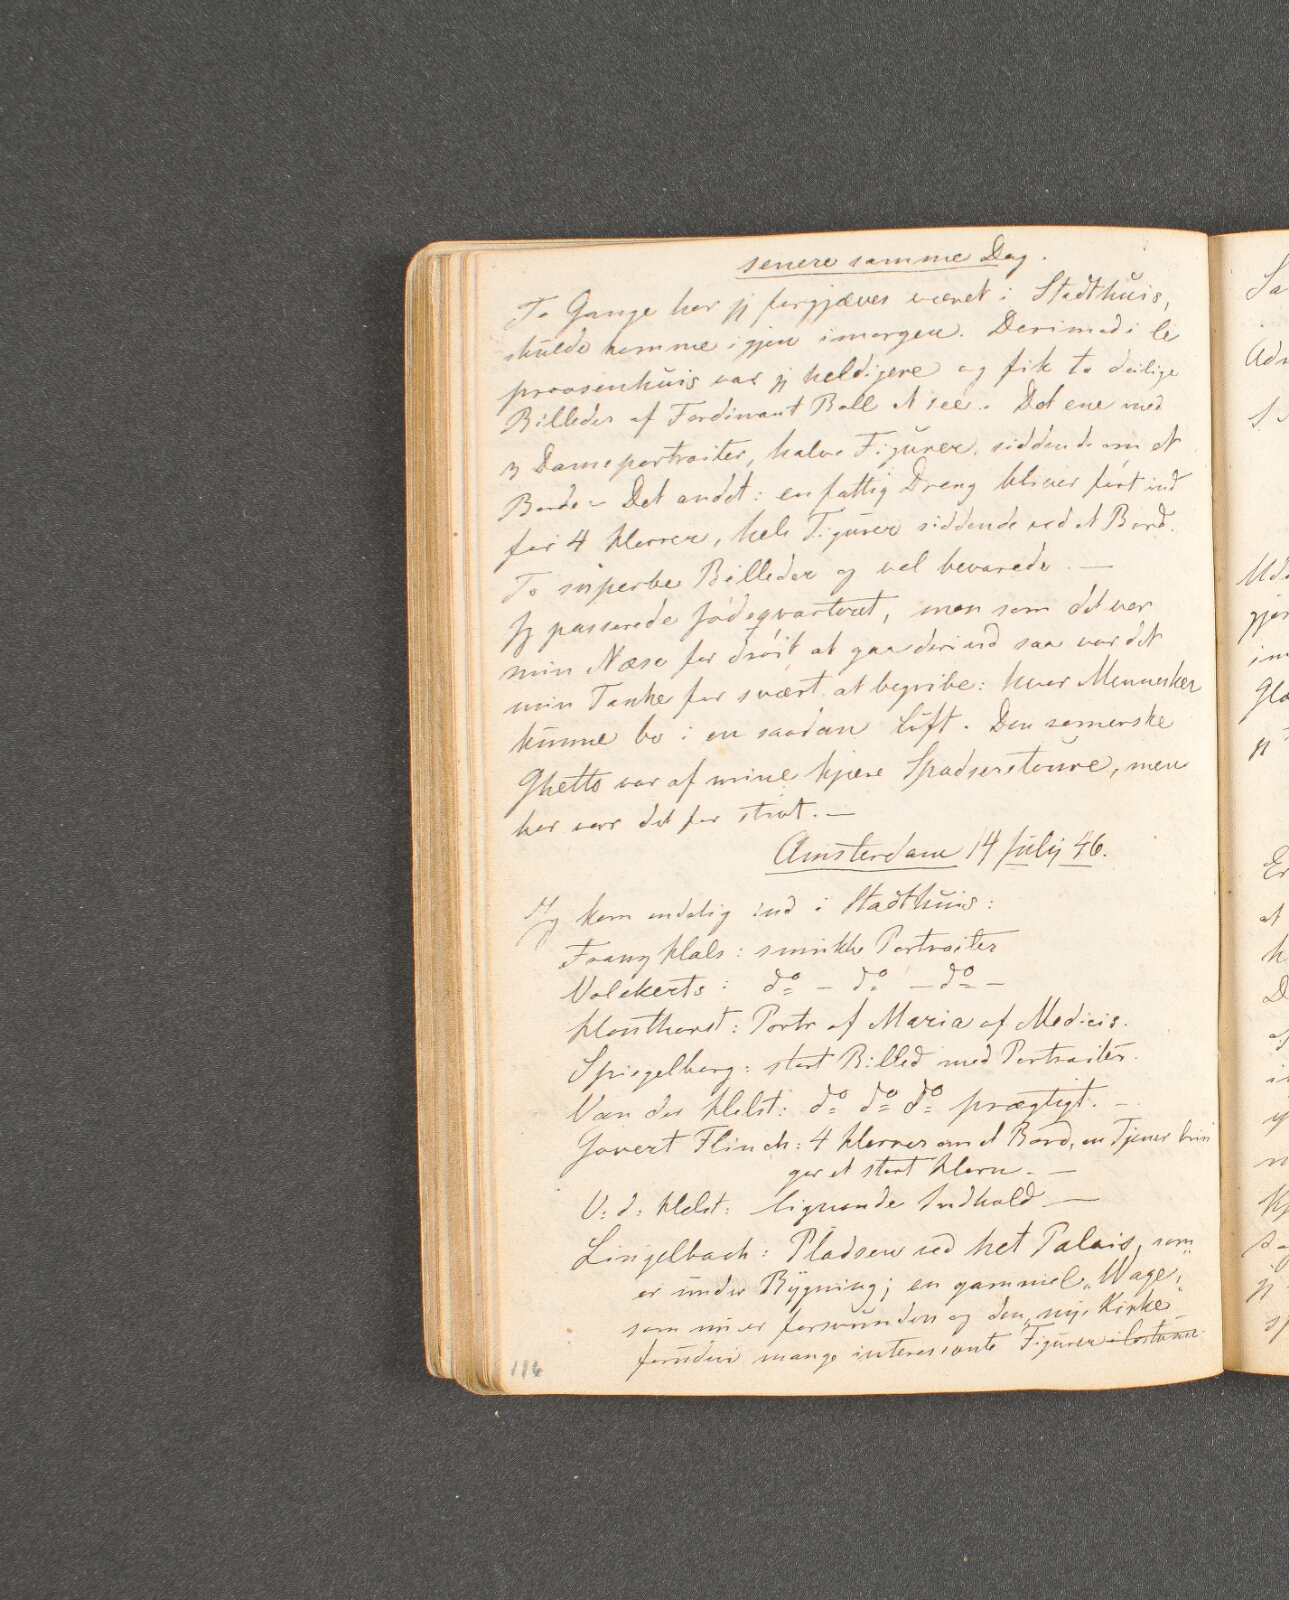 senere samme Dag.
To Gange har jeg forgjæves været i Stadthuis,
skulde komme igjen imorgen. Derimod i le
proosenhuis var jeg heldigere og fik to deilige
Billeder af Ferdinant Boll at see. Det ene med
3 Dameportraiter, halve Figurer, siddende om et
Bord. Det andet: en fattig Dreng bliver ført ind
for 4 Herrer, hele Figurer siddende ved et Bord.
To superbe Billeder og vel bevarede. —
Jeg passerede Jødeqvarteret, men som det var
min Næse for drøit at gaa derind saa var det
min Tanke for svært at begribe: hvor Mennesker
kunne bo i en saadan Luft. Den romerske
Ghetto var af mine kjære Spadseretoure, men
her var det for stivt. —
Amsterdam 14 July 46.
Jeg kom endelig ind i Stadthuis:
Franz Hals: smukke Portraiter
Volckerts: do — do — do —
Honthorst: Portr af Maria af Medicis.
Spiegelberg: stort Billed med Portraiter.
Van der Helst: do do do prægtigt. —
Govert Flinch: 4 Herrer om et Bord, en Tjener brin
ger et stort Horn. —
V: d: Helst: lignende Indhold —
Lingelbach: Pladsen ved het Palais, som
er under Bygning; en gammel „Wage„
som nu er forsvunden og den „nye Kirke„
foruden mange interessante Figurer i Costumer
116
Sa
Adr
Ude
gjør
im
Gla
Er
at
h
D